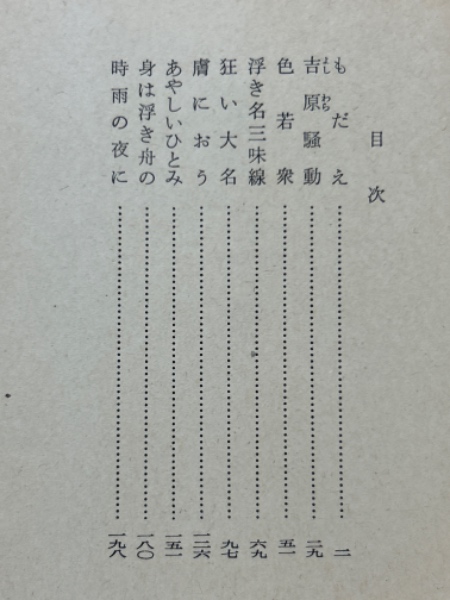 目次
もだえ……二
吉原騒動……二九
色若衆……五一
浮き名三味線……六九
狂い大名……九七
膚におう……一二六
あやしいひとみ……一五一
身は浮き舟の……一八〇
時雨の夜に……一九八